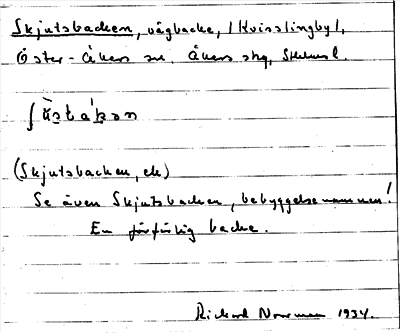 Skjutsbacken, vägbacke, /Kvisslingby/,
Öster-Åkers sn. Åkers skg, Sthlms l.
(Skjutsbacken, ek)
Se även Skjutsbacken, bebyggelsenamnen!
En förfärlig backe.
Rickard Norrman 1934.